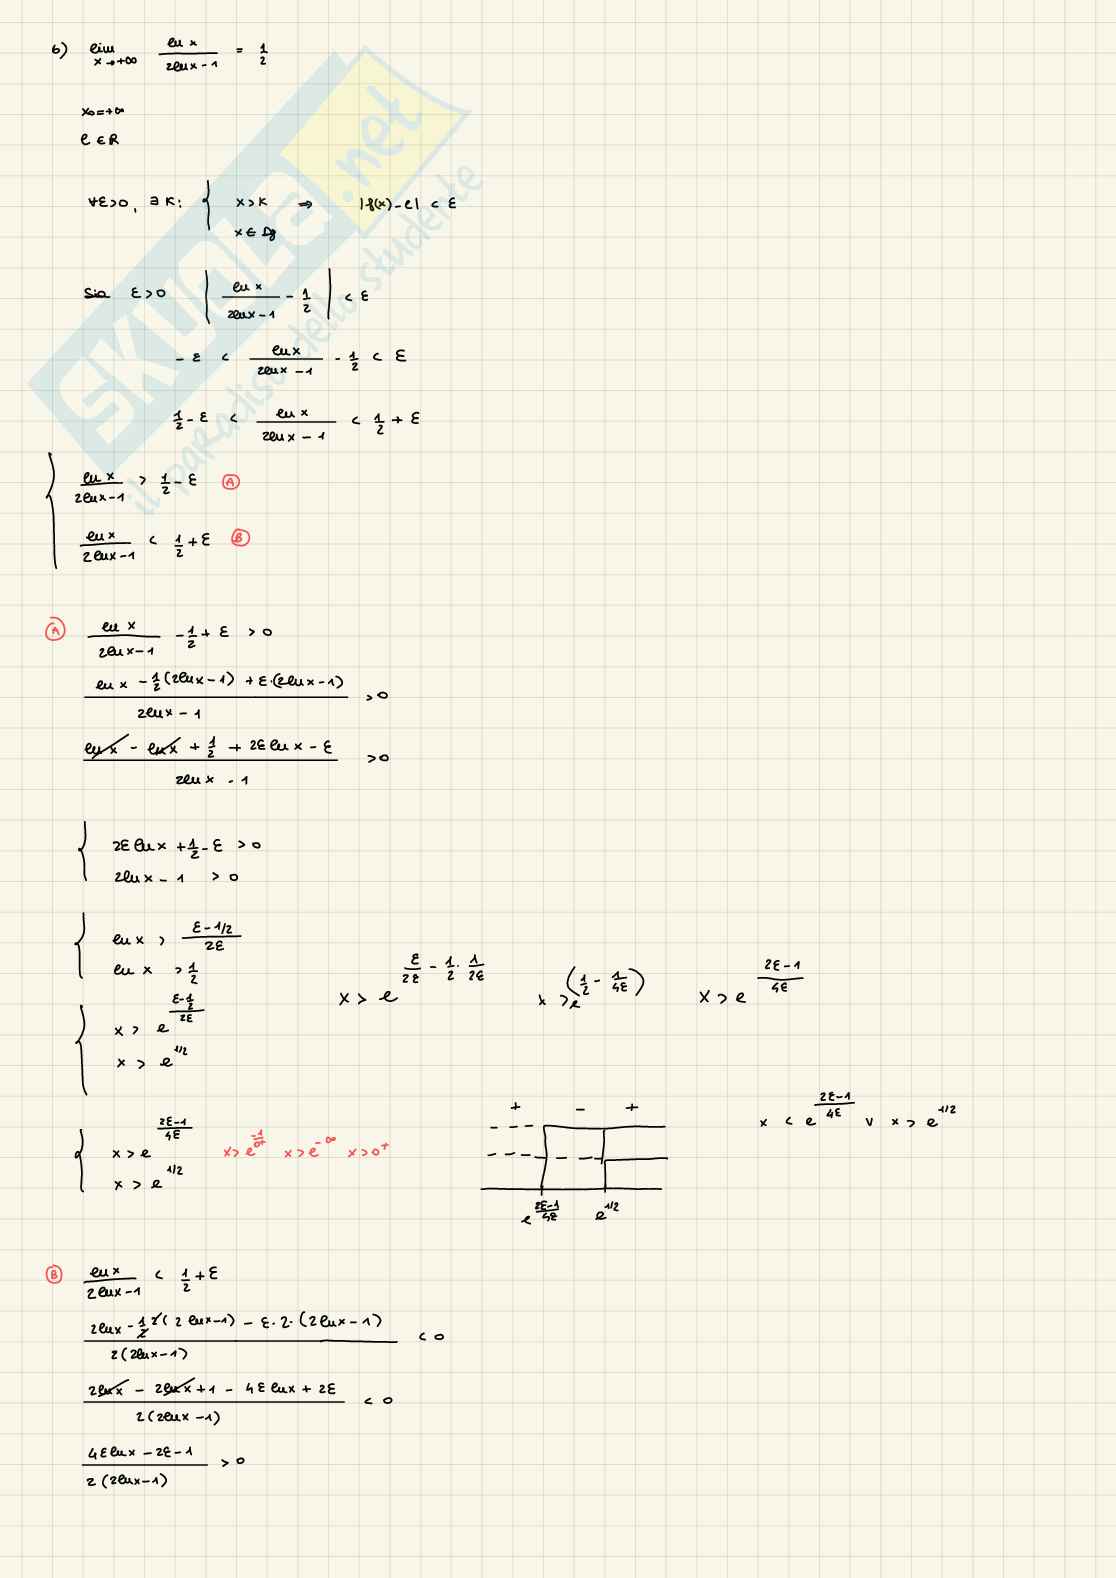 6) lim x→+∞ ln x / (2ln x - 1) = 1/2
x₀=+∞
l ∈ R
∀ε>0, ∃ K: { x>K ⇒ |f(x)-l| < ε
x ∈ Df
Sia ε>0 | ln x / (2ln x-1) - 1/2 | < ε
-ε < ln x / (2ln x-1) - 1/2 < ε
1/2 - ε < ln x / (2ln x-1) < 1/2 + ε
{ ln x / (2ln x-1) > 1/2 - ε (A)
ln x / (2ln x-1) < 1/2 + ε (B)
(A) ln x / (2ln x-1) - 1/2 + ε > 0
(ln x - 1/2 (2ln x-1) + ε·(2ln x-1)) / (2ln x - 1) > 0
(ln x - ln x + 1/2 + 2ε ln x - ε) / (2ln x - 1) > 0
{ 2ε ln x + 1/2 - ε > 0
2ln x - 1 > 0
{ ln x > (ε - 1/2) / 2ε
ln x > 1/2
x > e^(ε/2ε - 1/2 · 1/2ε) x > e^(1/2 - 1/4ε) x > e^((2ε-1)/4ε)
{ x > e^((ε-1/2)/2ε)
x > e^(1/2)
{ x > e^((2ε-1)/4ε) x > e^(-1/0+) x > e^(-∞) x > 0⁺
x > e^(1/2)
+ - +
e^((2ε-1)/4ε) e^(1/2)
x < e^((2ε-1)/4ε) ∨ x > e^(1/2)
(B) ln x / (2ln x-1) < 1/2 + ε
(2ln x - 1/2 2(2ln x-1) - ε·2·(2ln x-1)) / (2(2ln x-1)) < 0
(2ln x - 2ln x + 1 - 4ε ln x + 2ε) / (2(2ln x-1)) < 0
(4ε ln x - 2ε - 1) / (2(2ln x-1)) > 0
SKUOLA.net
il paradiso dello studente